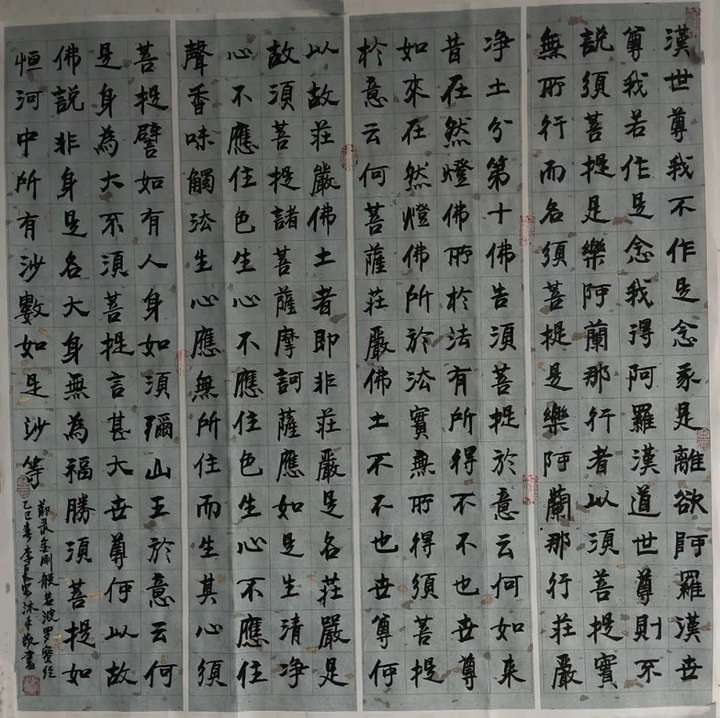 漢世尊我不作是念我是離欲阿羅漢世
尊我若作是念我得阿羅漢道世尊則不
說須菩提是樂阿蘭那行者以須菩提實
無所行而名須菩提是樂阿蘭那行莊嚴
净土分第十佛告須菩提於意云何如来
昔在然燈佛所於法有所得不不也世尊
如來在然燈佛所於法實無所得須菩提
於意云何菩薩莊嚴佛土不不也世尊何
以故莊嚴佛土者即非莊嚴是名莊嚴是
故須菩提諸菩薩摩訶薩應如是生清净
心不應住色生心不應住色生心不應住
聲香味觸法生心應無所住而生其心須
菩提譬如有人身如須彌山王於意云何
是身為大不須菩提言甚大世尊何以故
佛說非身是名大身無為福勝須菩提如
恒河中所有沙數如是沙等
節录金剛般若波罗蜜经
乙巳春李沐手敬書